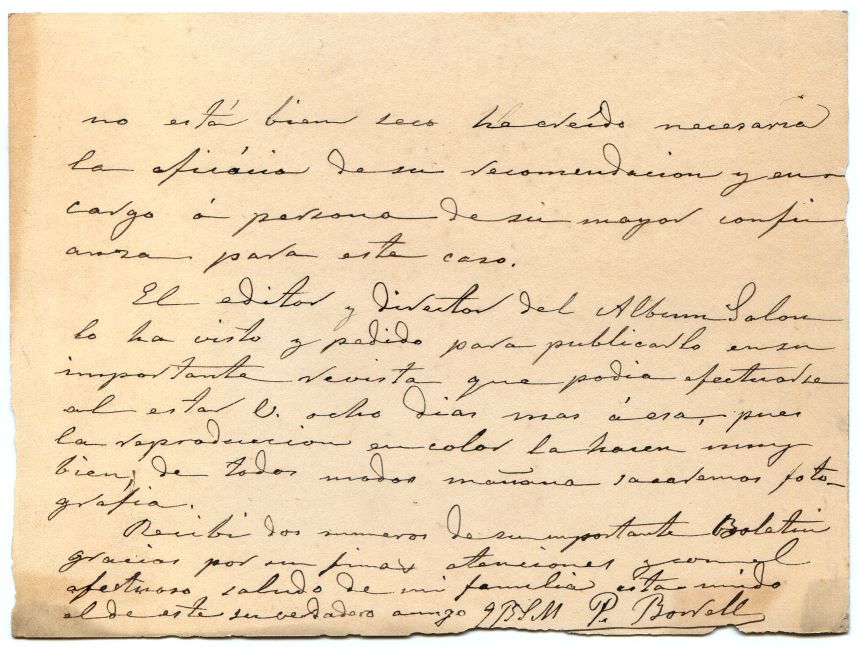 no está bien seco he creido necesaria
la eficácia de su recomendacion y en
cargo á persona de su mayor confi
anza para este caso.
El editor y director del Album Salon
lo ha visto y pedido para publicarlo en su
importante revista que podia efectuarse
al estar V. ocho dias mas á esa, pues
la reproduccion en color la hacen muy
bien, de todos modos mañana sacaremos foto-
grafia.
Recibi dos numeros de su importante Boletin
gracias por sus finas atenciones y con el
afectuoso saludo de mi familia esta unido
el de este su verdadero amigo q B S M P. Borrell